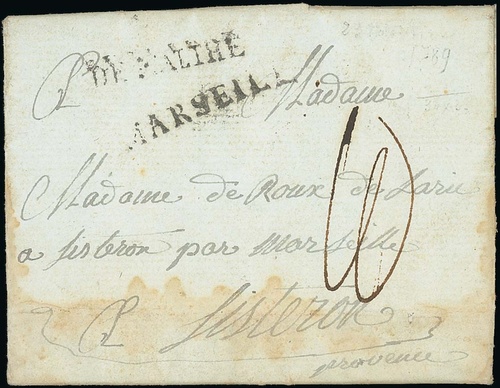 DE MALTHE
MARSEILLE
1789
A Madame
Madame de Roux de Larie
a sisteron par marseille
A sisteron
provence